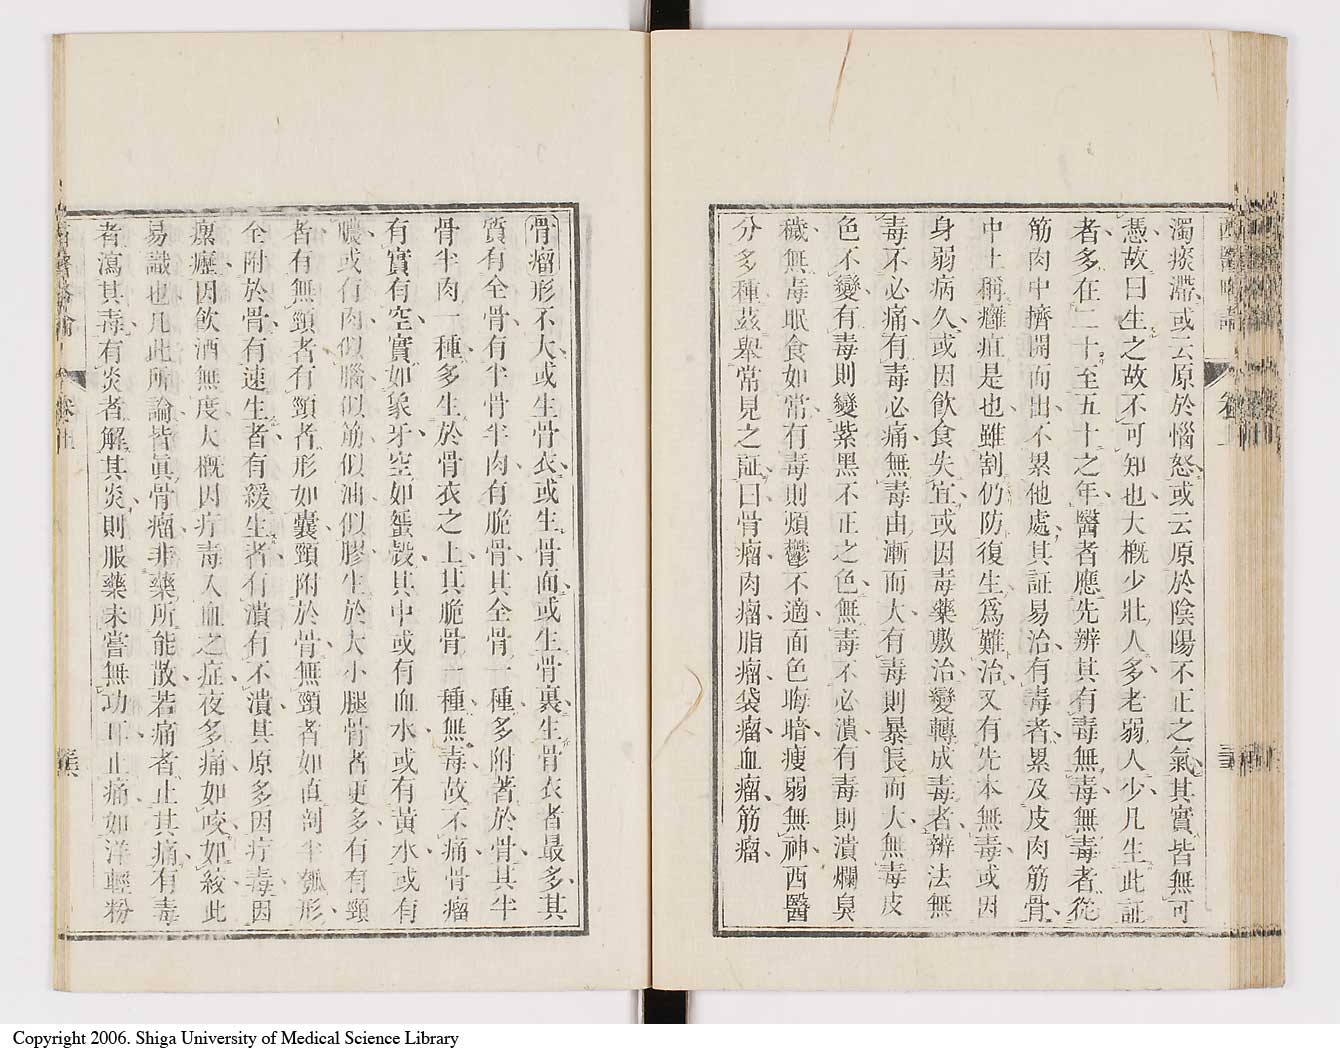 濁痰滯或云原於惱怒或云原於陰陽不正之氣其實皆無可
憑故曰生之故不可知也大概少壯人多老弱人少凡生此証
者多在二十至五十之年醫者應先辨其有毒無毒無毒者從
筋肉中擠開而出不累他處其証易治有毒者累及皮肉筋骨
中土稱癰疽是也雖割仍防復生爲難治又有先本無毒或因
身弱病久或因飲食失宜或因毒藥敷治變轉成毒者辨法無
毒不必痛有毒必痛無毒由漸而大有毒則暴長而大無毒皮
色不變有毒則變紫黑不正之色無毒不必潰有毒則潰爛臭
穢無毒眠食如常有毒則煩鬱不適面色晦暗瘦弱無神西醫
分多種茲舉常見之証曰骨瘤肉瘤脂瘤袋瘤血瘤筋瘤
骨瘤形不大或生骨衣或生骨面或生骨裏生骨衣者最多其
質有全骨有半骨半肉有脆骨其全骨一種多附著於骨其半
骨半肉一種多生於骨衣之上其脆骨一種無毒故不痛骨瘤
有實有空實如象牙空如蛋殼其中或有血水或有黃水或有
膿或有肉似腦似筋似油似膠生於大小腿骨者更多有有頸
者有無頸者有頸者形如囊頸附於骨無頸者如直剖半瓠形
全附於骨有速生者有緩生者有潰有不潰其原多因疔毒因
瘰癧因飲酒無度大概因疔毒入血之症夜多痛如咬如絞此
易識也凡此所論皆眞骨瘤非藥所能散若痛者止其痛有毒
者瀉其毒有炎者解其炎則服藥未嘗無功耳止痛如洋輕粉
Copyright 2006. Shiga University of Medical Science Library